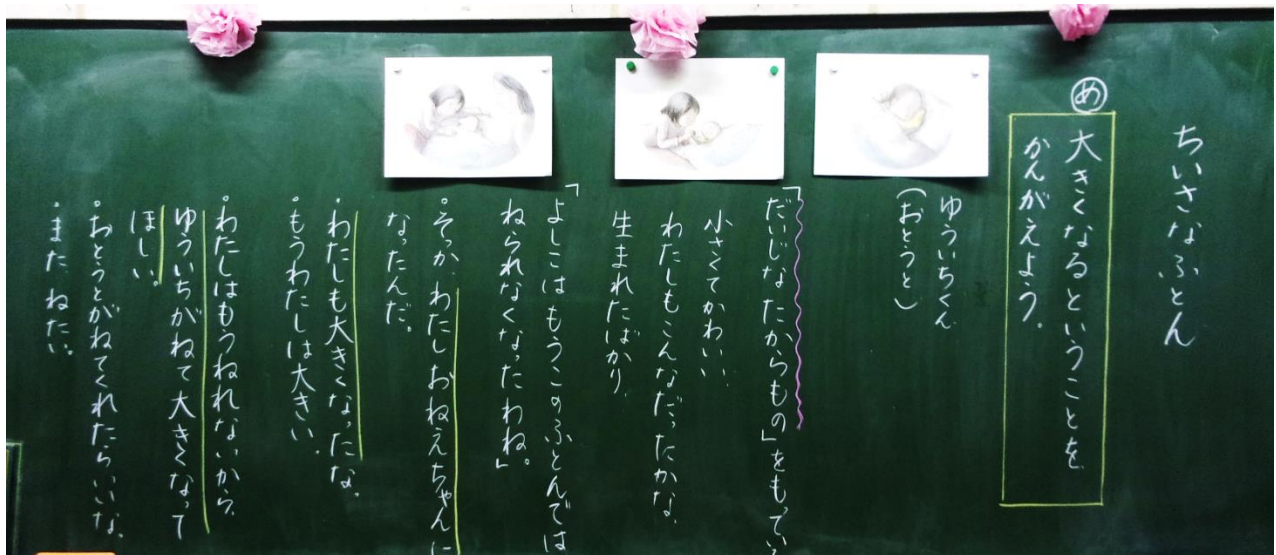 ちいさなふとん
め
大きくなるということを
かんがえよう。
ゆういちくん
(おとうと)
「だいじなたからもの」をもってい
小さくてかわいい。
わたしもこんなだったかな。
生まれたばかり
「よしこはもうこのふとんでは
ねられなくなったわね。」
・そっか、わたしおねえちゃんに
なったんだ。
・わたしも大きくなったな。
・もうわたしは大きい。
・わたしはもうねれないから
ゆういちがねて大きくなって
ほしい。
・おとうとがねてくれたらいいな。
・また、ねたい。